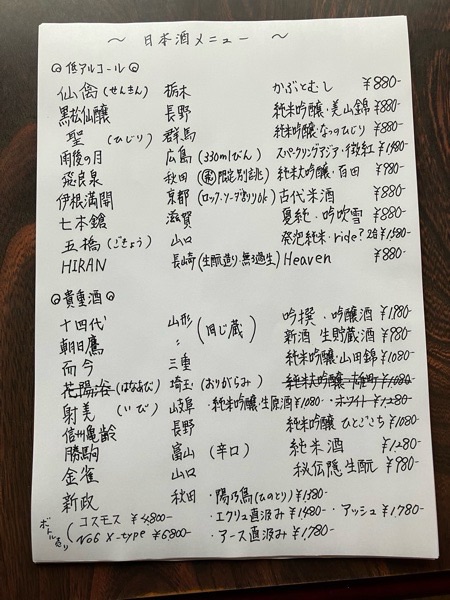 ～ 日本酒メニュー ～
◎低アルコール◎
仙禽(せんきん) 栃木 かぶとむし ¥880-
黒松仙醸 長野 純米吟醸・美山錦 ¥880-
聖(ひじり) 群馬 純米吟醸・なつのひじり ¥880-
雨後の月 広島(330mlびん) スパークリングアジア・微紅 ¥1,480-
飛良泉 秋田(限定別誂) 純米大吟醸・百田 ¥980-
伊根満開 京都(ロック、ソーダ割りok) 古代米酒 ¥880-
七本鎗 滋賀 夏純・吟吹雪 ¥880-
五橋(ごきょう) 山口 発泡純米・ride? ¥1,580-
HIRAN 長崎(生酛造り、無ろ過生) Heaven ¥880-
◎貴重酒◎
十四代 山形 (同じ蔵) 吟撰・吟醸酒 ¥1,980-
朝日鷹 〃 新酒 生貯蔵酒 ¥980-
而今 三重 純米吟醸・山田錦 ¥1080-
花陽浴(はなあび) 埼玉(おりがらみ) 純米大吟醸・雄町 ¥1080-
射美(いび) 岐阜 ・純米吟醸・生原酒 ¥1080- ・ホワイト ¥1,280-
信州亀齢 長野 純米吟醸 ひとごこち ¥1080-
勝駒 富山(辛口) 純米酒 ¥1,280-
金雀 山口 秘伝隠生酛 ¥980-
新政 秋田 ・陽乃鳥(ひのとり) ¥1,380-
ボトル売り(コスモス ¥4,800- ・エクリュ直汲み ¥1480- ・アッシュ ¥1,780-
No6 X-type ¥6800- ・アース直汲み ¥1,780-